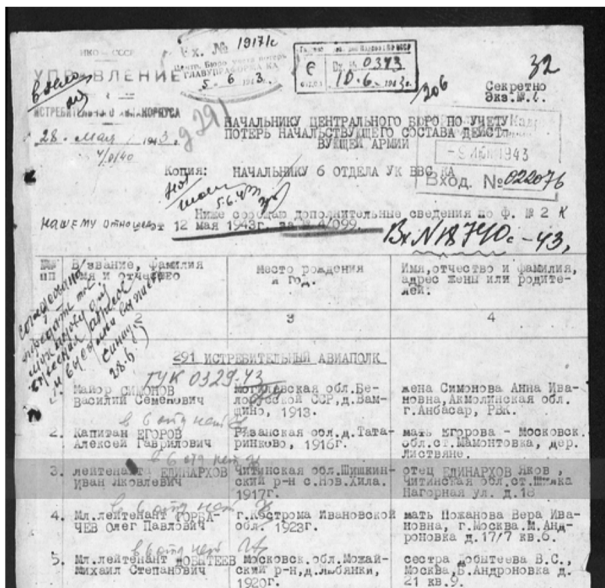 НКО — СССР
УПРАВЛЕНИЕ
ИСТРЕБИТЕЛЬНОГО АВИАКОРПУСА
28 мая 1943г.
Вх. № 1917/с
ГЛАВУПРАФОРМА КА
5-6 1943
Вх. № 0373
10.6.1943г.
32
Секретно
Экз.№
НАЧАЛЬНИКУ ЦЕНТРАЛЬНОГО БЮРО ПО УЧЕТУ
ПОТЕРЬ НАЧАЛЬСТВУЮЩЕГО СОСТАВА ДЕЙСТ-
ВУЮЩЕЙ АРМИИ
1943
Вход. № 022076
Копия: НАЧАЛЬНИКУ 6 ОТДЕЛА УК ВВС КА
5.6.43
Ниже сообщаю дополнительные сведения по ф. № 2 к
нашему отношению от 12 мая 1943г. за № 4/099.
Вх N 18740с-43,
№№ пп
В/звание, фамилия имя и отчество
Место рождения и год.
Имя, отчество и фамилия, адрес жены или родите- лей.
2 3 4
291 ИСТРЕБИТЕЛЬНЫЙ АВИАПОЛК
ГУК 0329-43
Майор СИМОНОВ Василий Семенович
обл.Бе- ССР,д. 1913.
жена Симонова Анна Ива- новна, Акмолинская обл. г.Анбасар, РВК.
в 6 отд нет
2. Капитан ЕГОРОВ Алексей Гаврилович
Рязанская обл.д.Тата- ринково, 1916г.
мать Егорова - Московск. обл.ст.Мамонтовка, дер. Листвяне.
в 6 отд нет
3. лейтенант ЕДИНАРХОВ Иван Яковлевич
Читинская обл.Шишкин- ский р-н с.Нов.Хила. 1917г.
отец ЕДИНАРХОВ Яков, Читинская обл.ст.Шилка Нагорная ул. д.18
в 6 отд нет
4. Мл.лейтенант ГОРБА- ЧЕВ Олег Павлович
г.Кострома Ивановской обл. 1923г.
мать Ножанова Вера Ива- новна, г.Москва,М.Анд- роновка д.17/7 кв.6.
в 6 отд нет
5. Мл.лейтенант ДОБЫТЕЕВ Михаил Степанович
Московск.обл.Можай- ский р-н,д.Любянки, 1920г.
сестра Добытеева В.С., Москва,Б.Андроновка д. 21 кв.9.